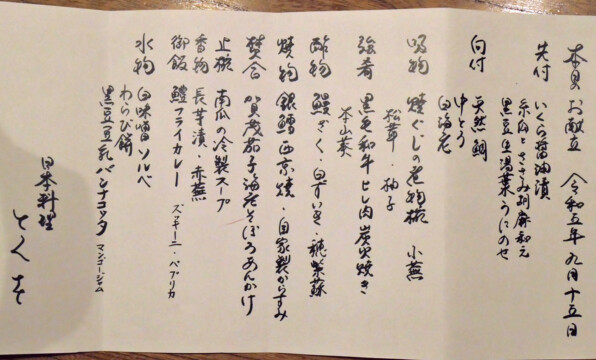 本日お献立 令和五年九月十五日
先付 いくら醤油漬
糸瓜とささみ胡麻和え
黒豆生湯葉うにのせ
向付 天然鯛
中とろ
白海老
吸物 焼ぐじの煮物椀 小蕪
松茸・柚子
強肴 黒毛和牛ヒレ肉炭火焼き
本山葵
酢物 鰻ざく・白ずいき・穂紫蘇
焼物 銀鱈西京焼・自家製からすみ
焚合 賀茂茄子海老そぼろあんかけ
止椀 南瓜の冷製スープ
香物 長芋漬・赤蕪
御飯 鱧フライカレー ズッキーニ・パプリカ
水物 白味噌ソルベ
わらび餅
黒豆豆乳パンナコッタ マンゴージャム
日本料理
とくを